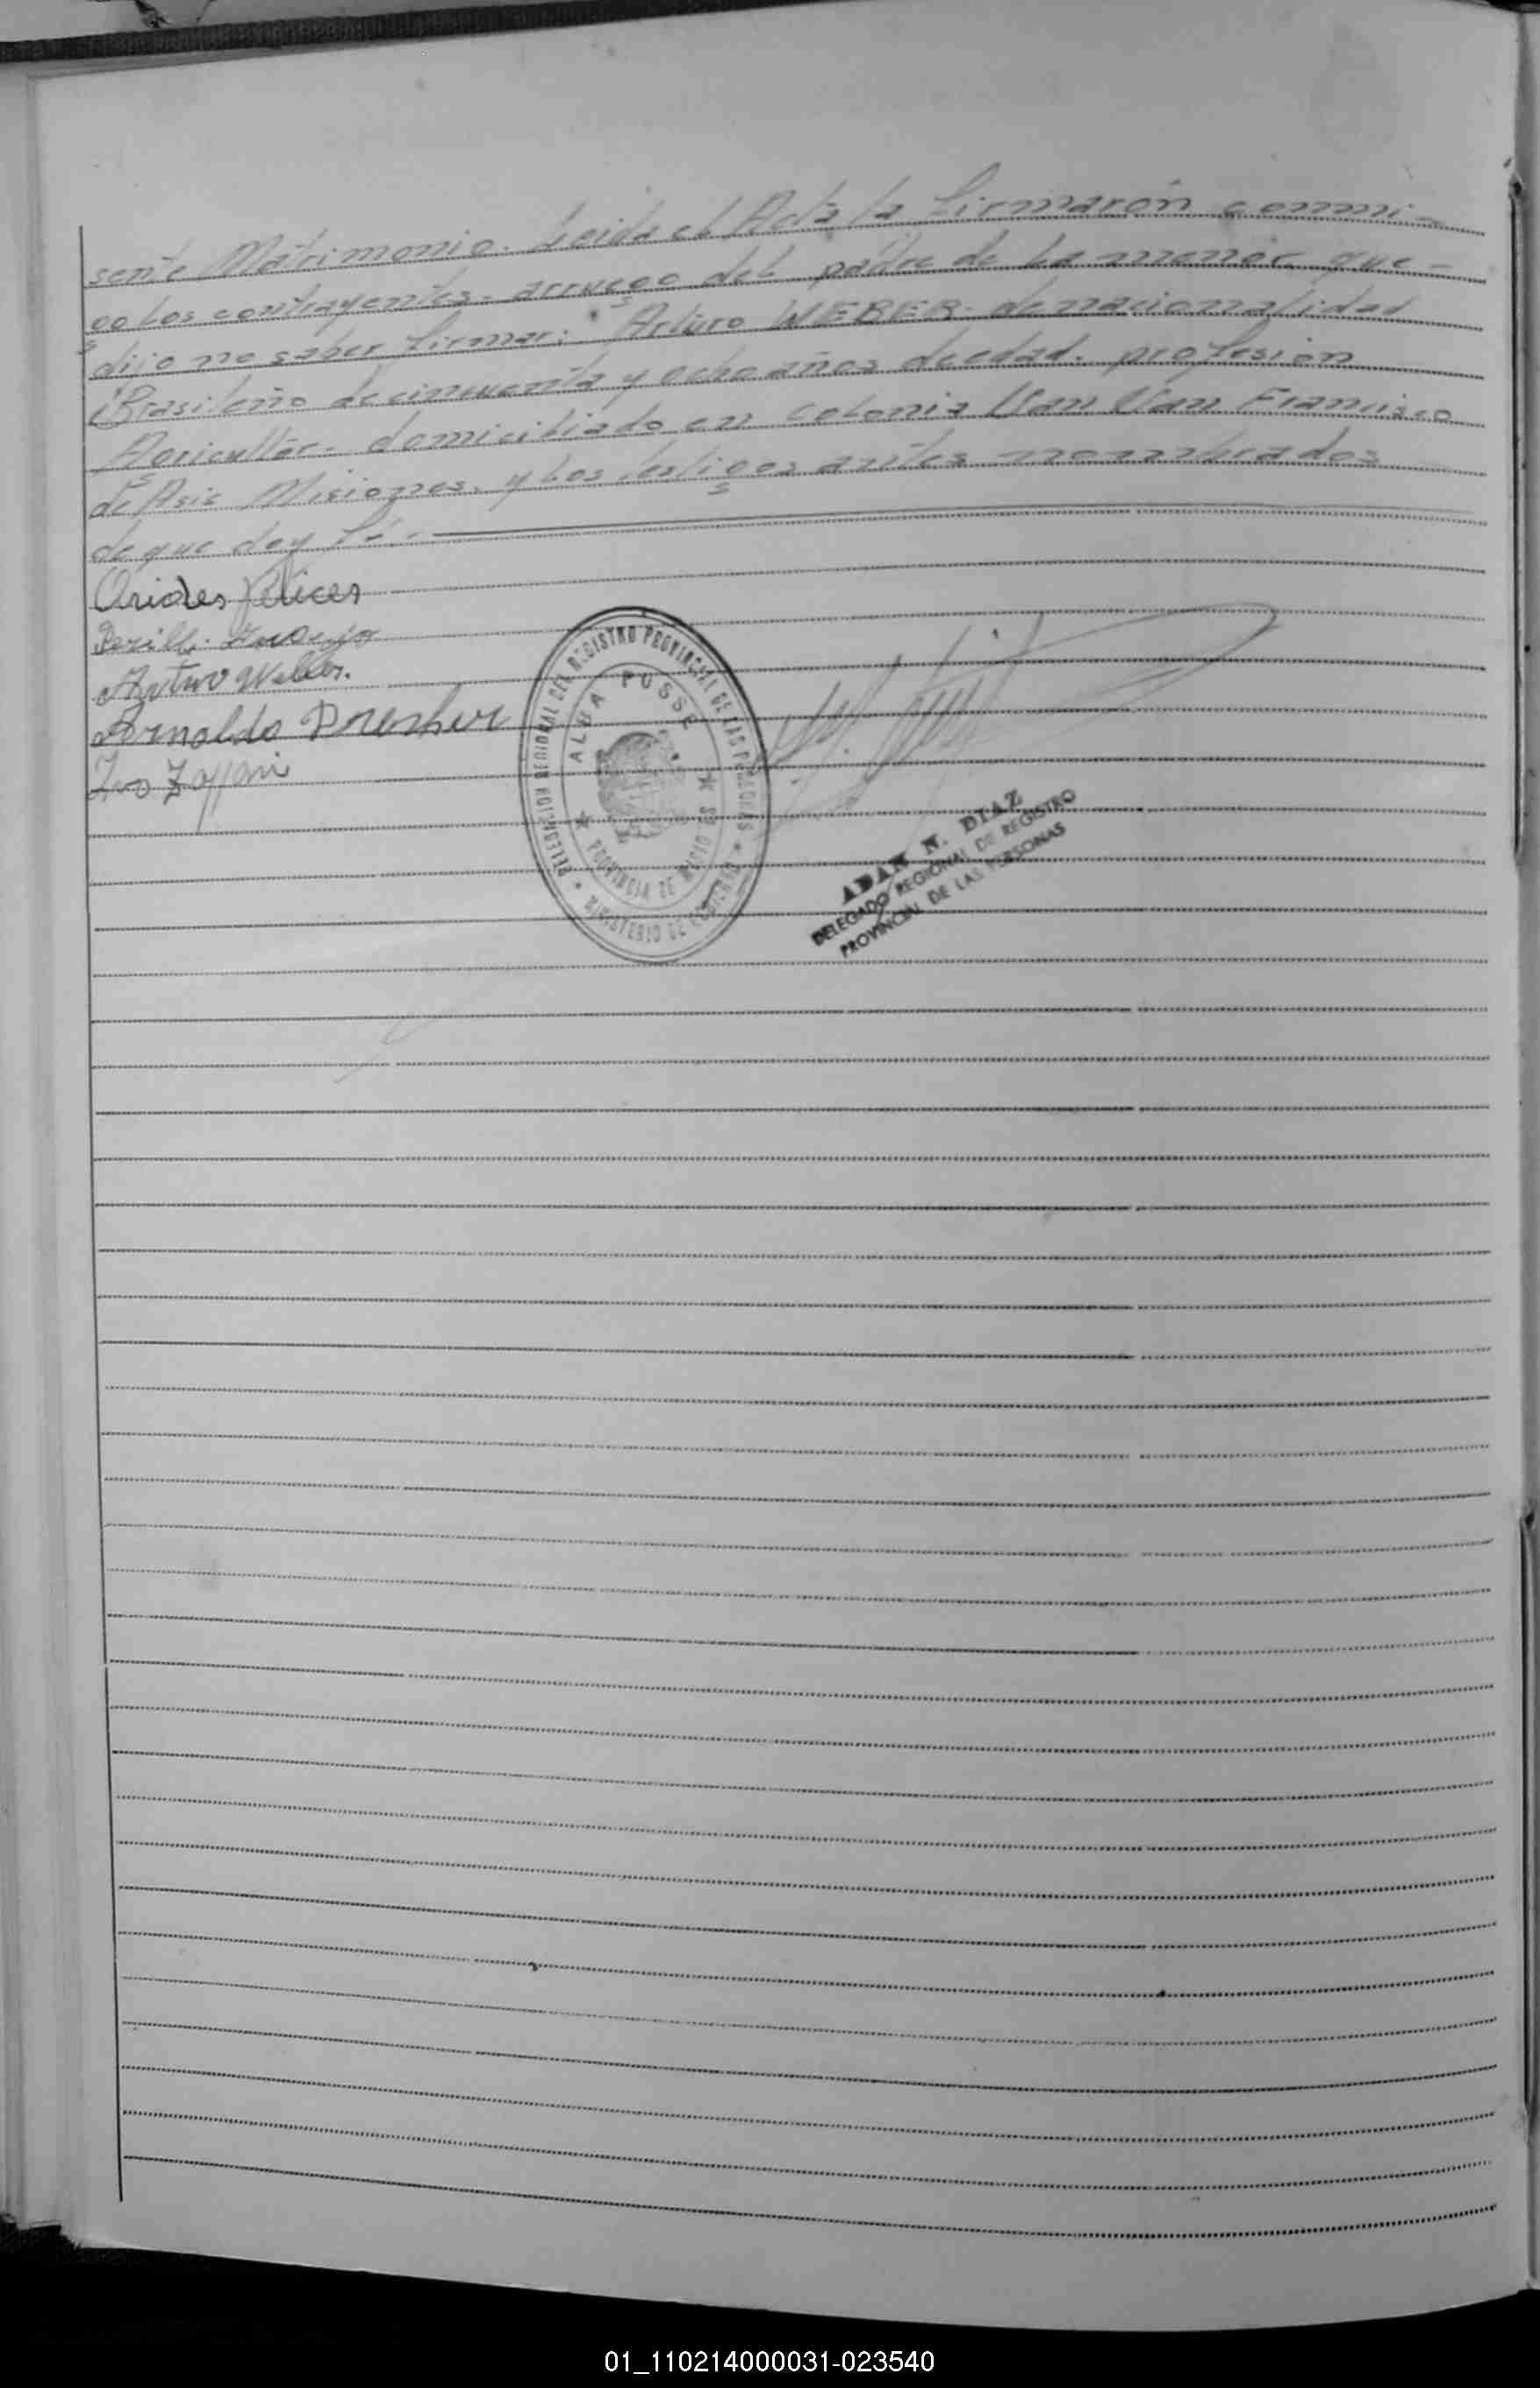 sente Matrimonio. Leida el Acta la firmarón conmi-
go los contrayentes. arruego del padre de la menór que-
dijo no saber firmar: Arturo WEBER. de nacionalidad
Brasileño de cincuenta y ocho años de edad. profesión
Agricultór. domiciliado en colonia San Francisco
de Asis Misiones. y los testigos antes nombrados
de que doy fé.
Arides
Arturo Weber.
Arnaldo Drescher
DELEGACION REGIONAL DEL REGISTRO PROVINCIAL DE LAS PERSONAS
MINISTERIO DE GOBIERNO
ALBA POSSE
PROVINCIA DE MISIONES
ADAN N. DIAZ
DELEGADO REGIONAL DE REGISTRO
PROVINCIAL DE LAS PERSONAS
01_110214000031-023540